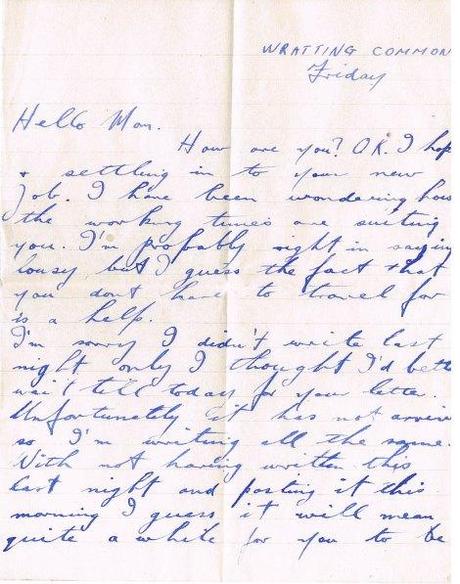 WRATTING COMMON
Friday
Hello Mom.
How are you? O.K. I hop
& settling in to your new
job. I have been wondering how
the working times are suiting
you. I'm probably right in saying
lousy but I guess the fact that
you dont have to travel far
is a help.
I'm sorry I didn't write last
night only I thought I'd bette
wait till today for your letter.
Unfortunately it has not arrive
so I'm writing all the same.
With not having written this
last night and posting it this
morning I guess it will mean
quite a while for you to be